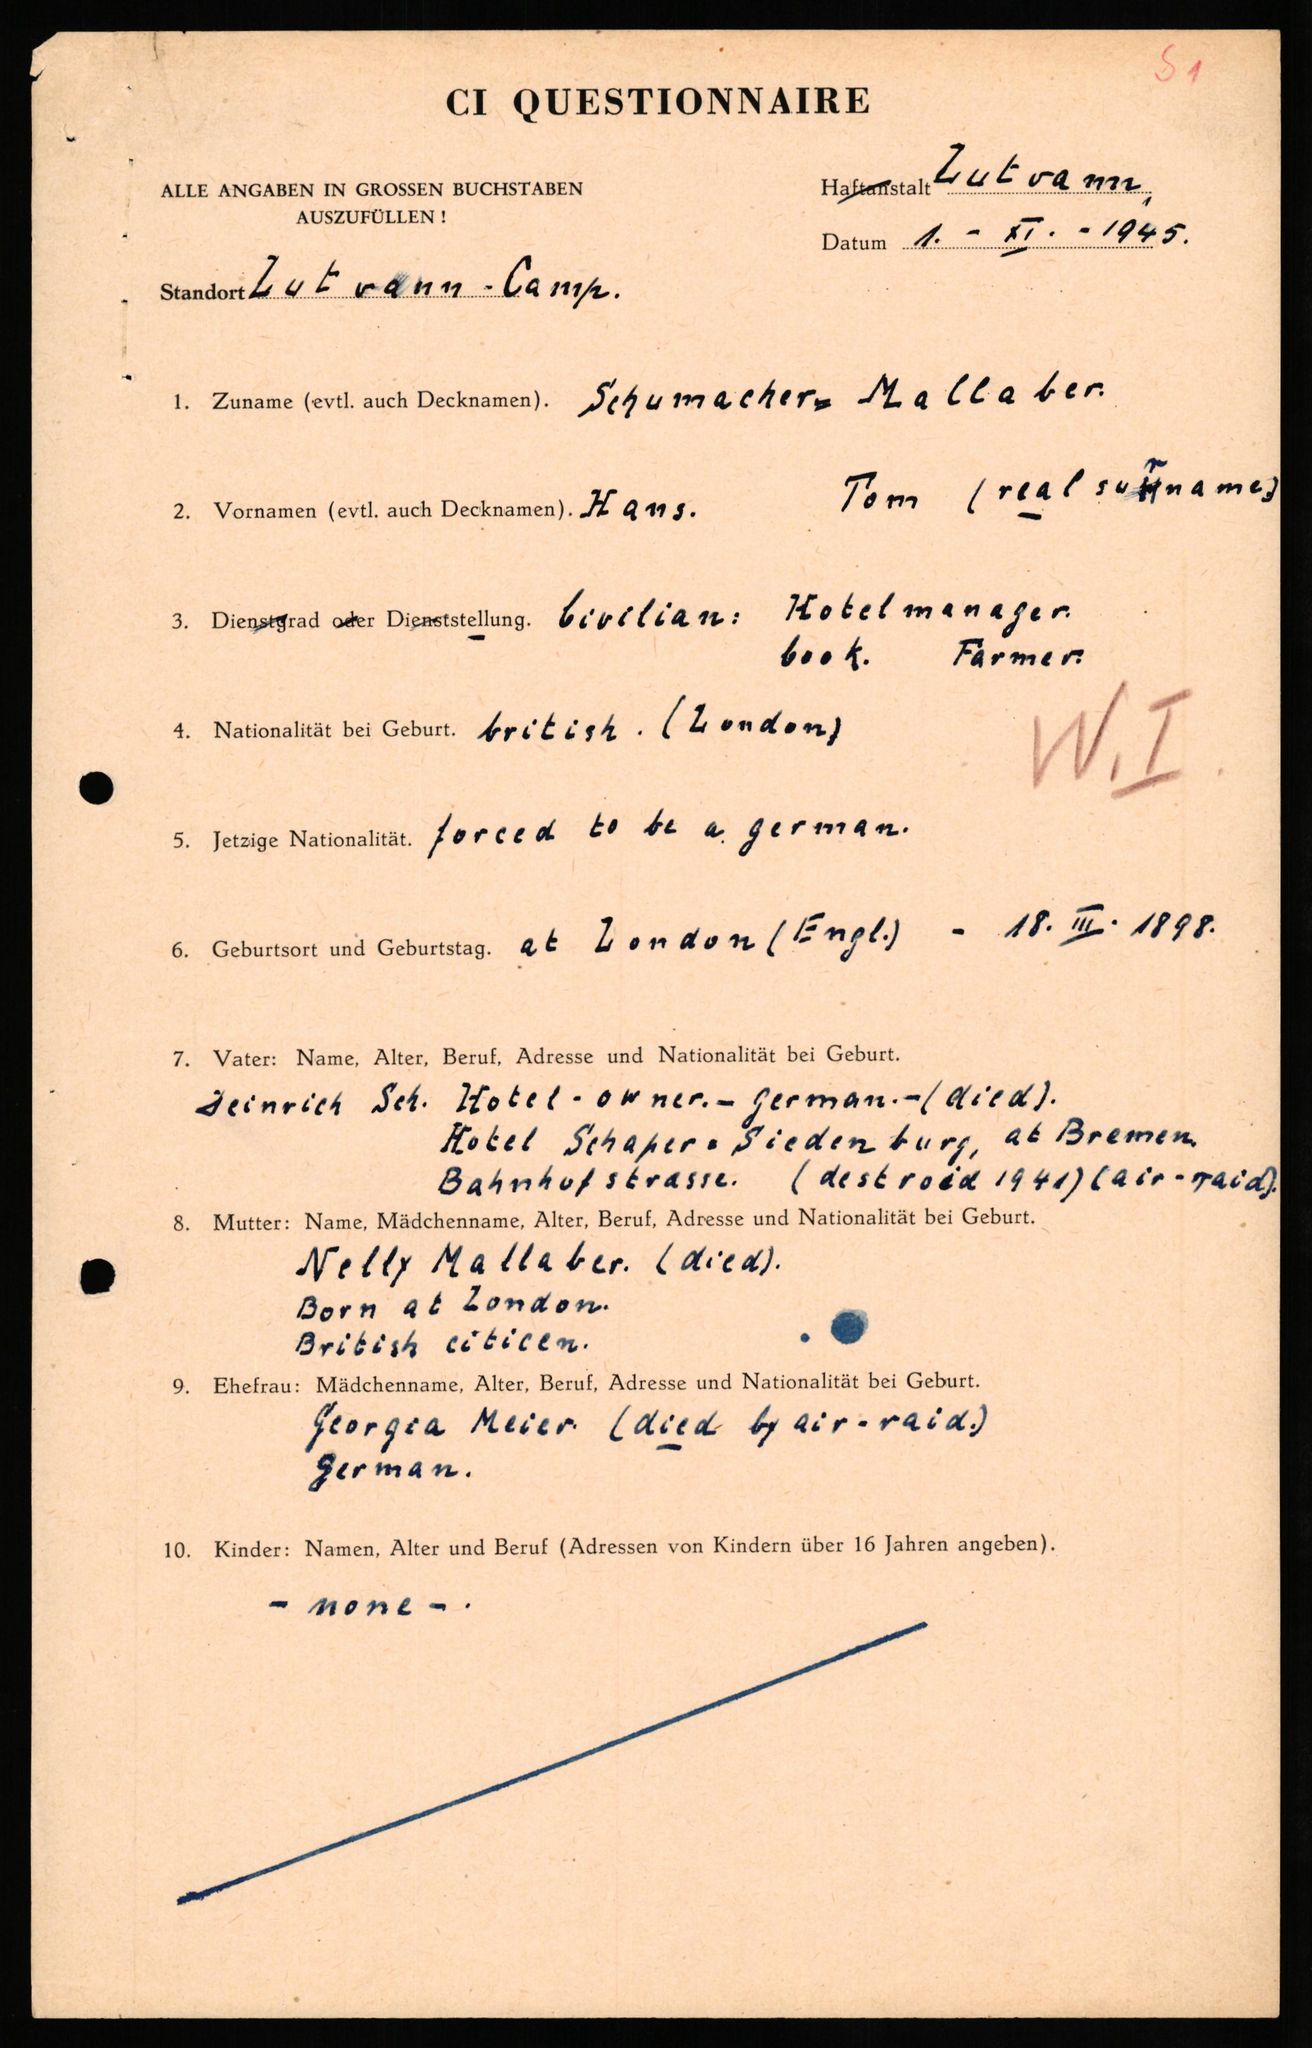 S 1
CI QUESTIONNAIRE
ALLE ANGABEN IN GROSSEN BUCHSTABEN
AUSZUFÜLLEN !
Haftanstalt Lutvann,
Datum 1. - XI. - 1945.
Standort Lutvann - Camp.
1. Zuname (evtl. auch Decknamen). Schumacher = Mallaber.
2. Vornamen (evtl. auch Decknamen). Hans. Tom (real surname)
3. Dienstgrad oder Dienststellung. Civilian: Hotelmanager.
Cook. Farmer.
4. Nationalität bei Geburt. british. (London)
W.I.
5. Jetzige Nationalität. forced to be a german.
6. Geburtsort und Geburtstag. at London (Engl.) - 18. III. 1898.
7. Vater: Name, Alter, Beruf, Adresse und Nationalität bei Geburt.
Heinrich Sch. Hotel-owner. - German. - (died).
Hotel Schaper = Siedenburg, at Bremen.
Bahnhofstrasse. (destroid 1941) (air-raid).
8. Mutter: Name, Mädchenname, Alter, Beruf, Adresse und Nationalität bei Geburt.
Nelly Mallaber. (died).
Born at London.
British citicen.
9. Ehefrau: Mädchenname, Alter, Beruf, Adresse und Nationalität bei Geburt.
Georgia Meier. (died by air-raid.)
German.
10. Kinder: Namen, Alter und Beruf (Adressen von Kindern über 16 Jahren angeben).
- none - .